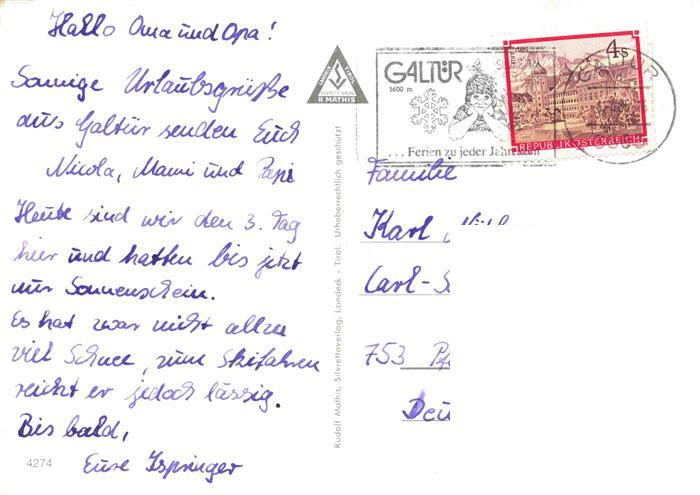 Hallo Oma und Opa!
Sonnige Urlaubsgrüße
aus Galtür senden Euch
Nicola, Mami und Papi
Heute sind wir den 3. Tag
hier und hatten bis jetzt
nur Sonnenschein.
Es hat zwar nicht allzu
viel Schnee, zum Skifahren
reicht er jedoch lässig.
Bis bald,
Eure Ispringer
4274
R. MATHIS
Rudolf Mathis, Silvrettaverlag, Landeck - Tirol. Urheberrechtlich geschützt!
GALTÜR
1600 m
... Ferien zu jeder Jahreszeit
4 S
REPUBLIK ÖSTERREICH
Familie
Karl
Carl-
753